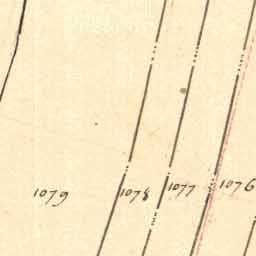 1079 1078 1077 1076